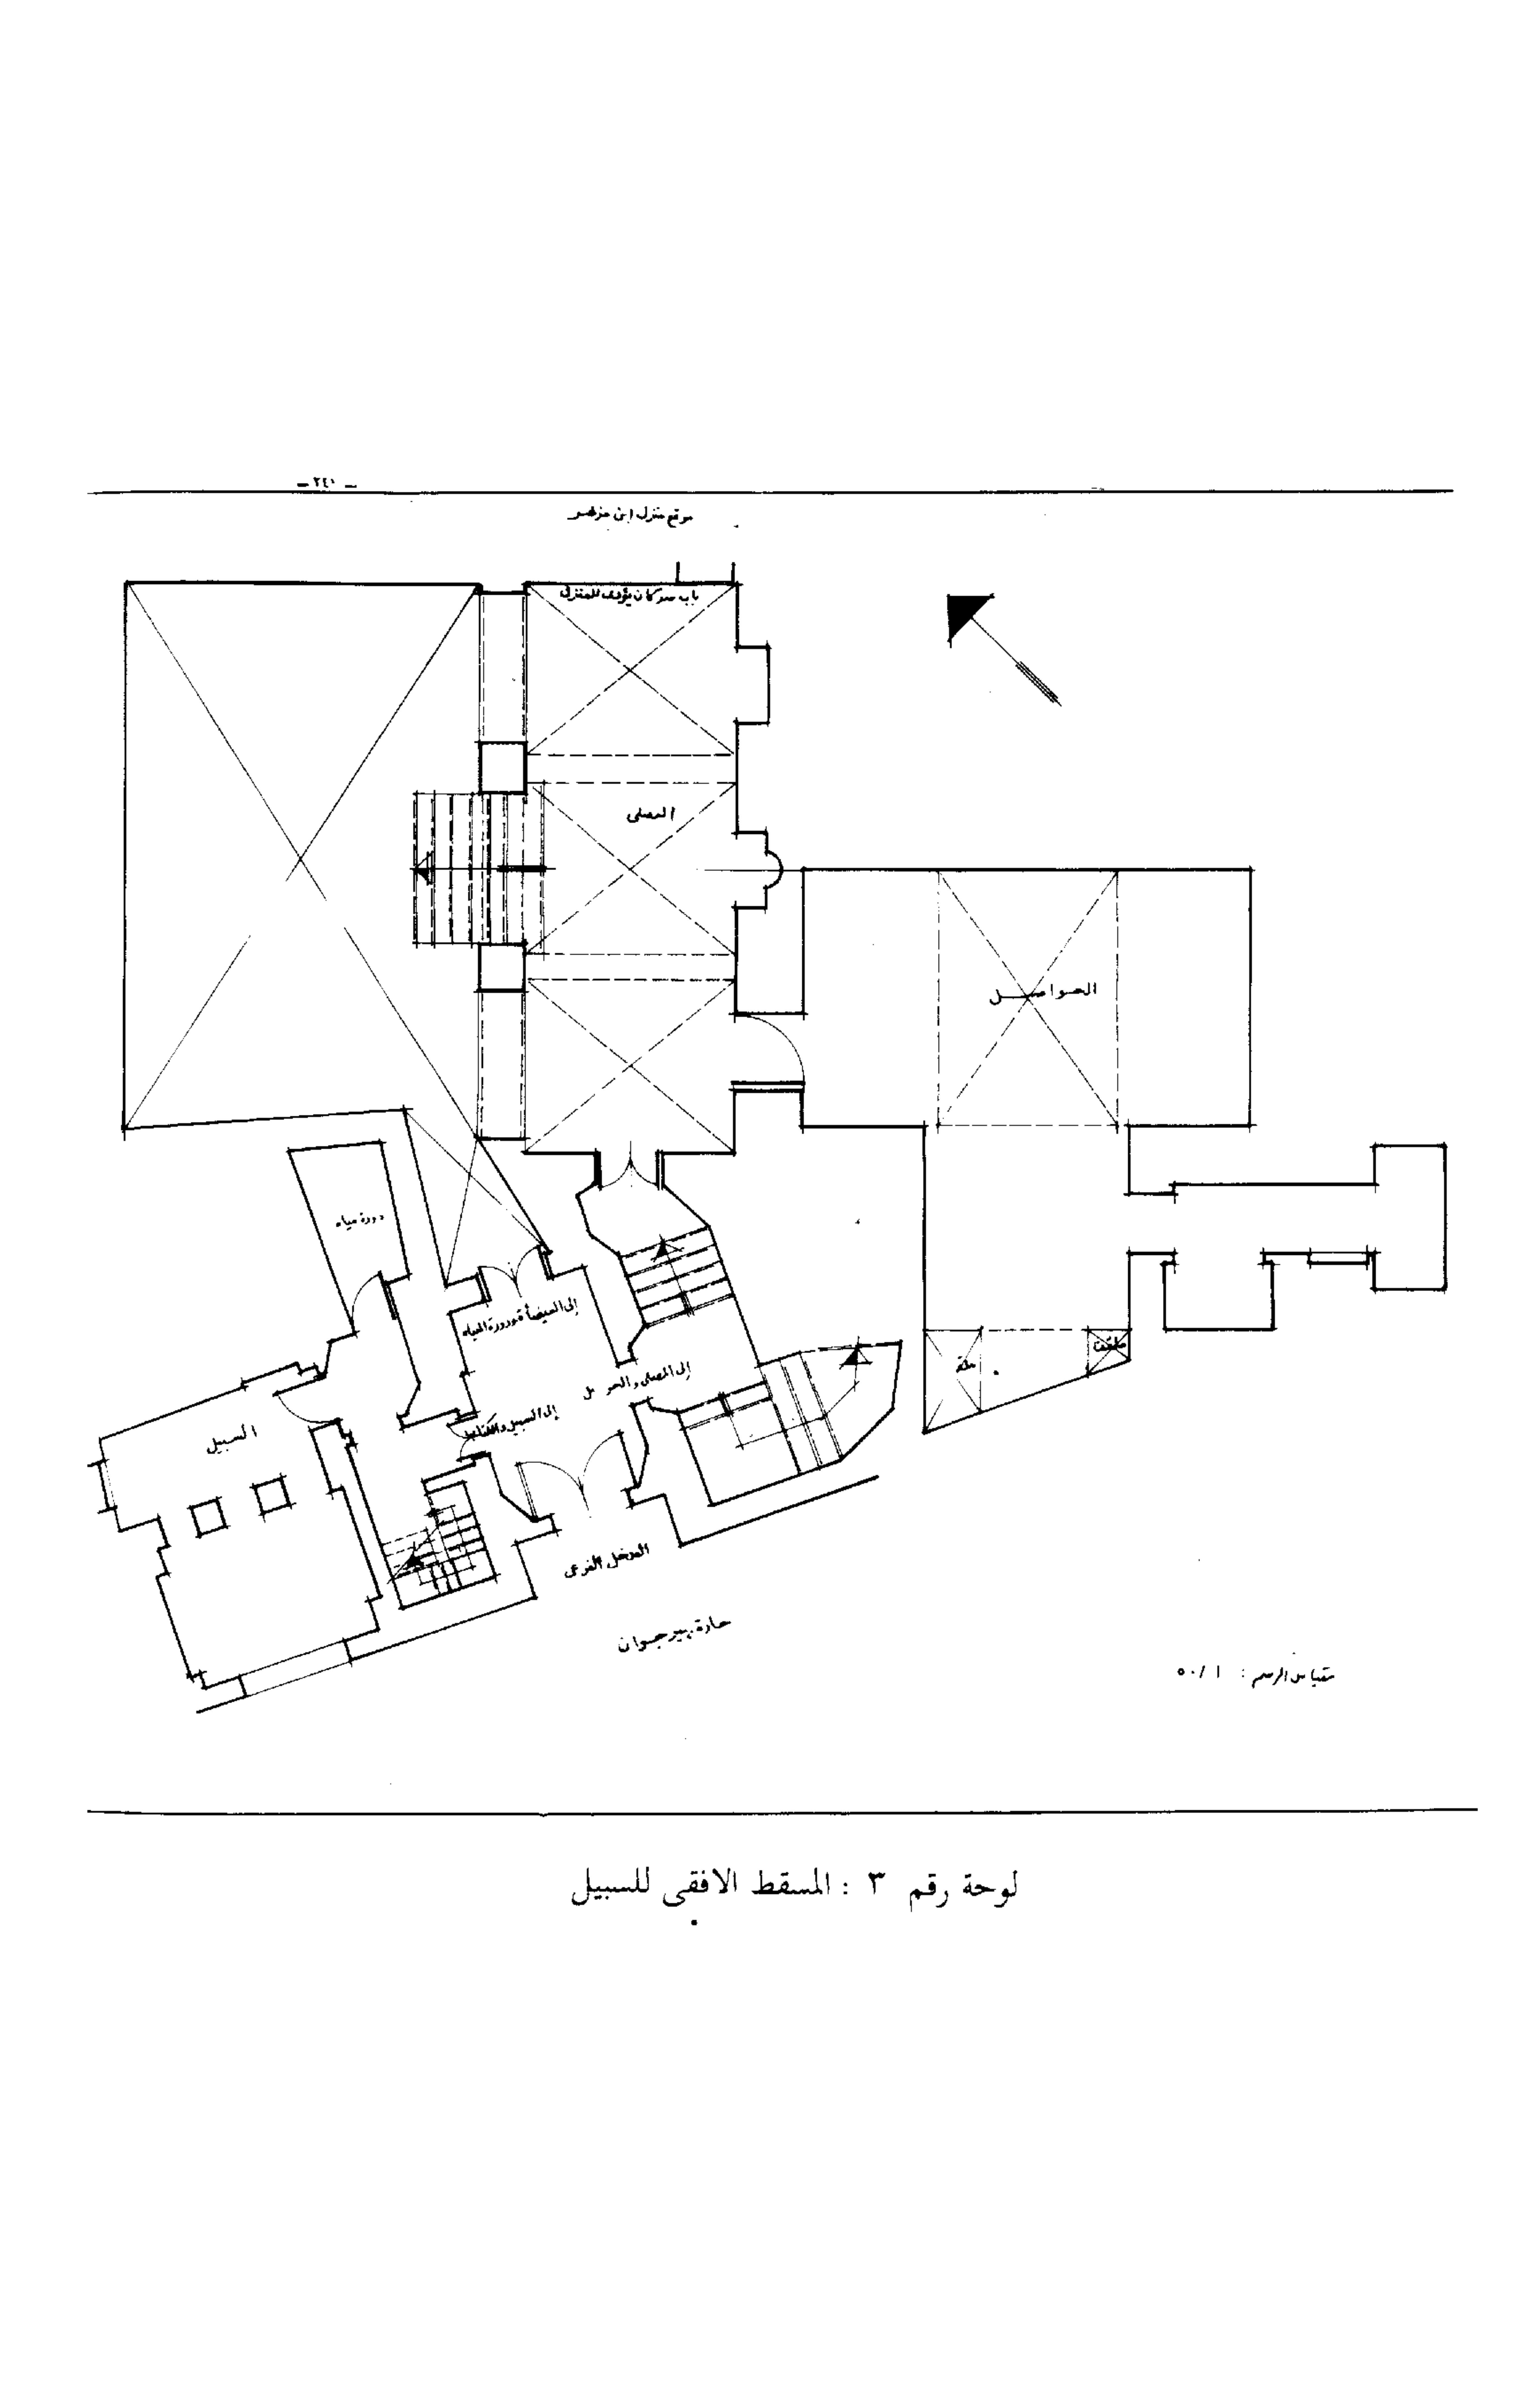 — ٢٤١ —
موقع منزل ابن مزهر
باب سر كان يؤدى للمنزل
المصلى
الحواصل
دورة مياه
إلى الميضأة ودورة المياه
إلى المصلى والحواصل
إلى السبيل والكتاب
السبيل
ملقف
المدخل الفرعى
حارة بيرجوان
مقياس الرسم : ١ / ٥٠
لوحة رقم ٣ : المسقط الافقى للسبيل